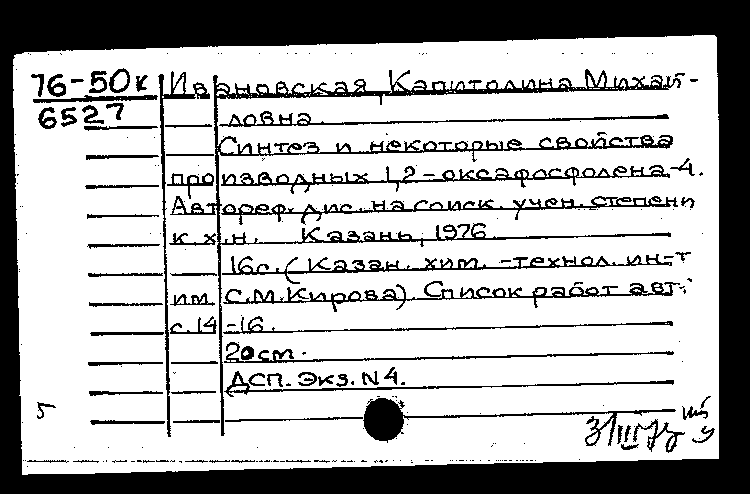 76-50к Ивановская, Капитолина Михай-
6527 ловна.
Синтез и некоторые свойства
производных 1,2-оксафосфолена-4.
Автореф. дис. на соиск. учен. степени
к.х.н. Казань, 1976
16с. (Казан. хим.-технол. ин-т
им. С.М.Кирова). Список работ авт.:
с.14-16.
20 см.
ДСП. Экз. N4.
5